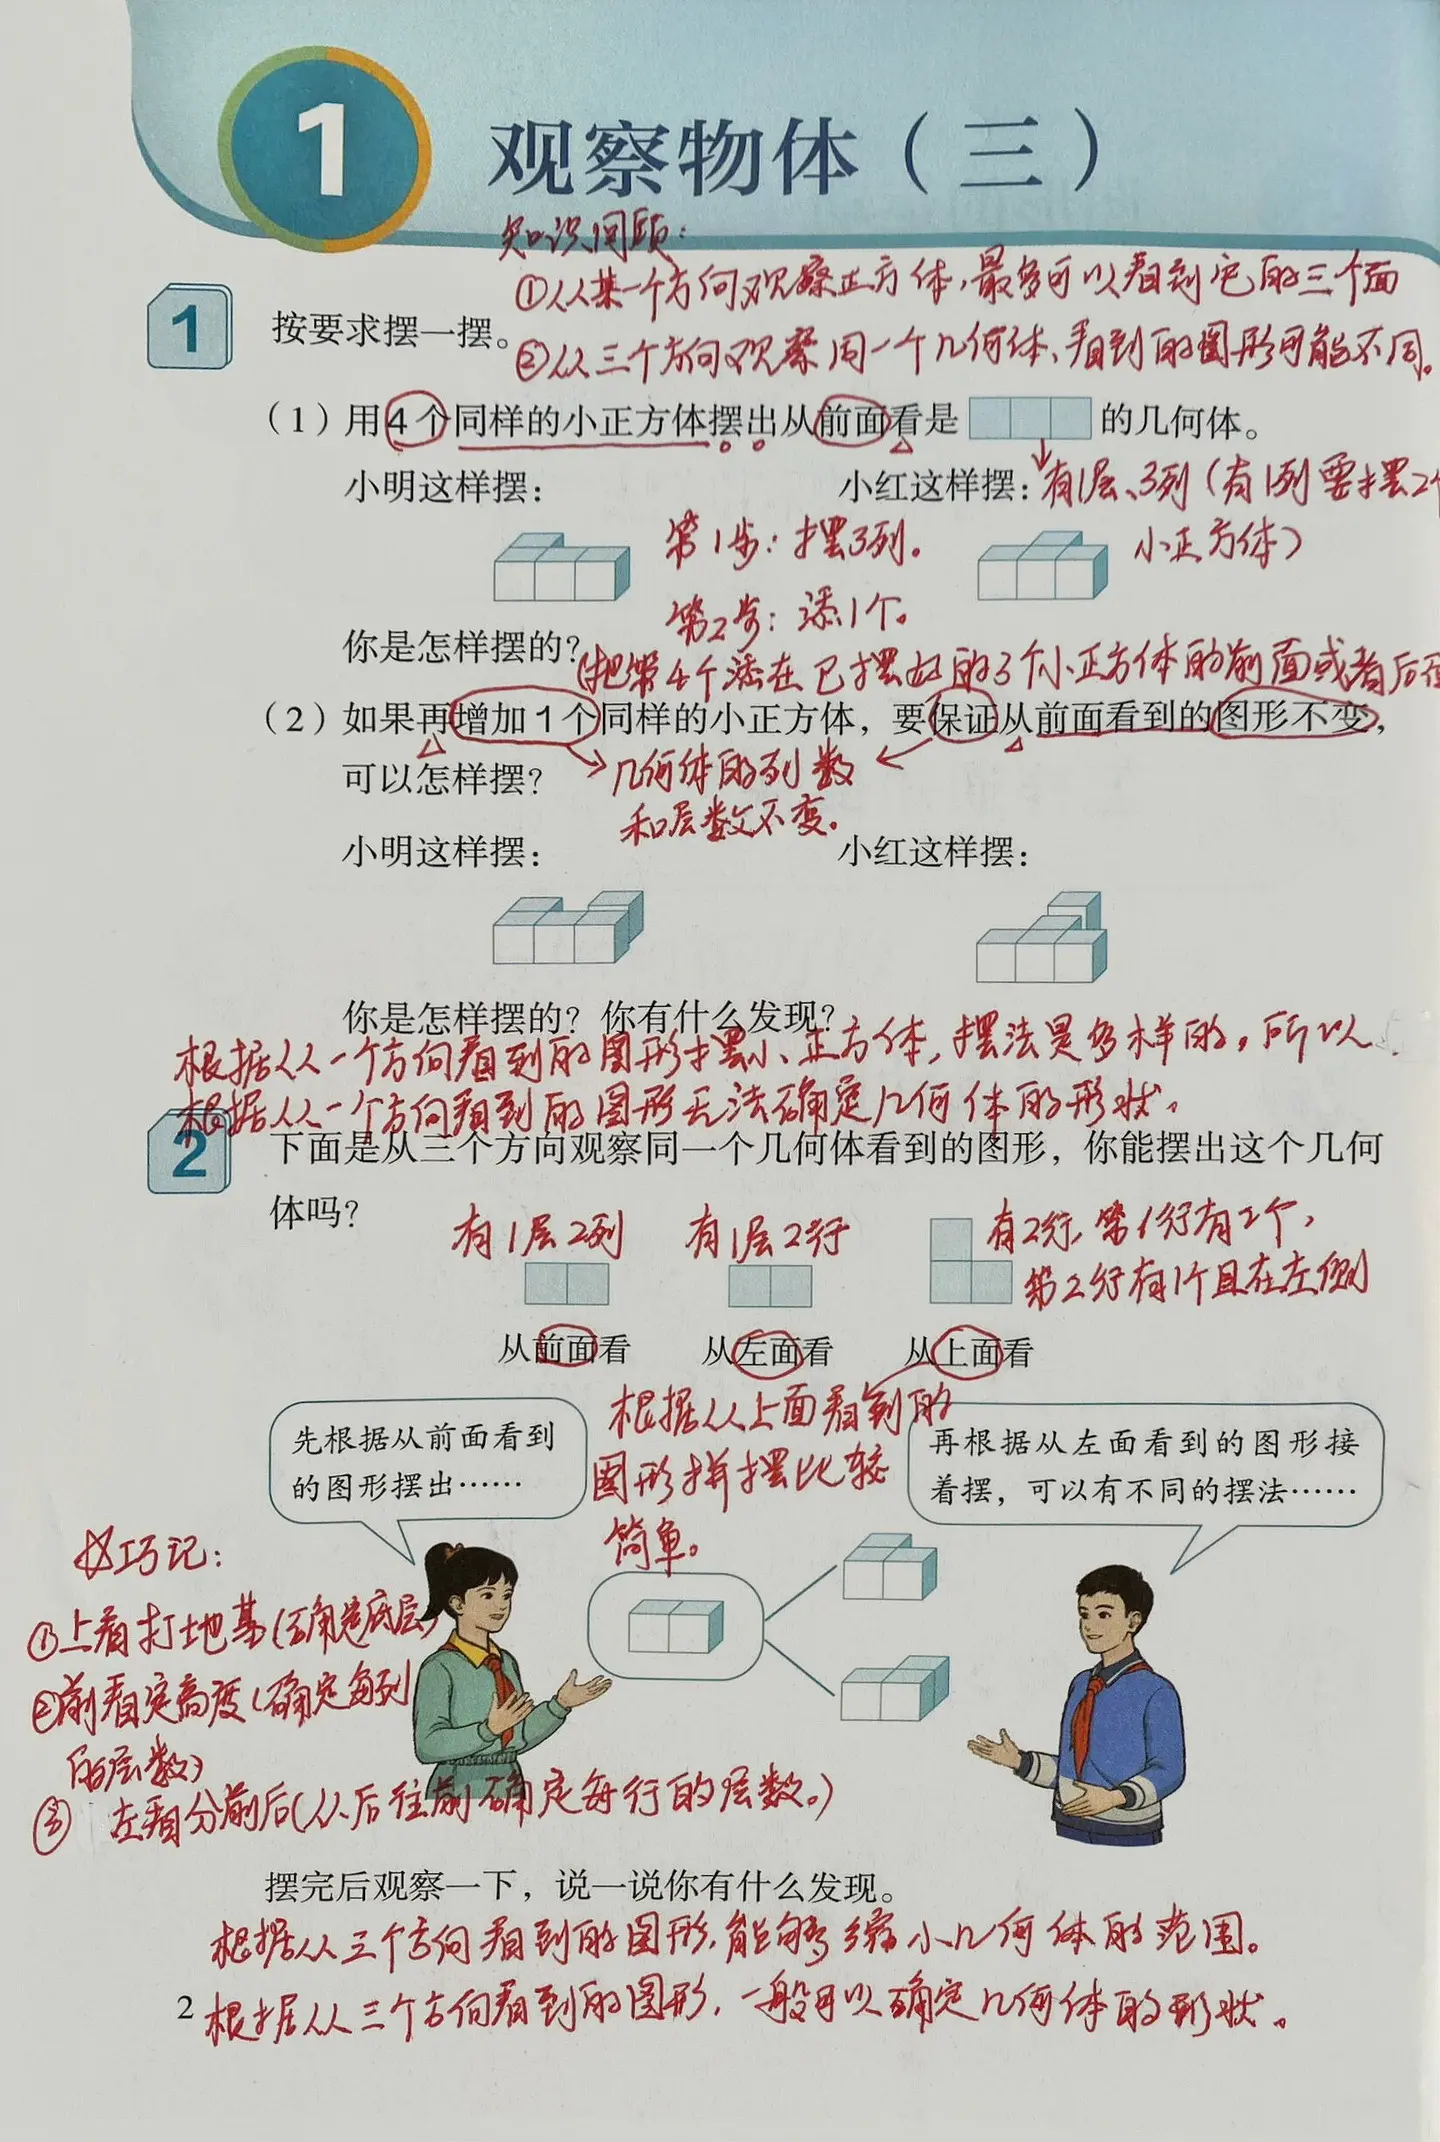 1
观察物体（三）
知识回顾：
①从某一个方向观察正方体，最多可以看到它的三个面
1
按要求摆一摆。
②从三个方向观察同一个几何体、看到的图形可能不同。
（1）用4个同样的小正方体摆出从前面看是的几何体。
小明这样摆：
小红这样摆：
有1层、3列（有1列要摆2个
小正方体）
第1步：摆3列。
第2步：添1个。
你是怎样摆的？
（把第4个添在已摆好的3个小正方体的前面或者后面
（2）如果再增加1个同样的小正方体，要保证从前面看到的图形不变，
可以怎样摆？
几何体的列数
和层数不变。
小明这样摆：
小红这样摆：
你是怎样摆的？你有什么发现？
根据从一个方向看到的图形摆小正方体，摆法是多样的。所以
根据从一个方向看到的图形无法确定几何体的形状。
2
下面是从三个方向观察同一个几何体看到的图形，你能摆出这个几何
体吗？
有1层2列
有1层2行
有2行，第1行有2个，
第2行有1个且在左侧
从前面看
从左面看
从上面看
根据从上面看到的
图形拼摆比较
简单。
先根据从前面看到
的图形摆出……
再根据从左面看到的图形接
着摆，可以有不同的摆法……
巧记：
①上看打地基（确定底层）
②前看定高度（确定每列
的层数）
③左看分前后（从后往前确定每行的层数。）
摆完后观察一下，说一说你有什么发现。
根据从三个方向看到的图形，能够缩小几何体的范围。
2
根据从三个方向看到的图形，一般可以确定几何体的形状。